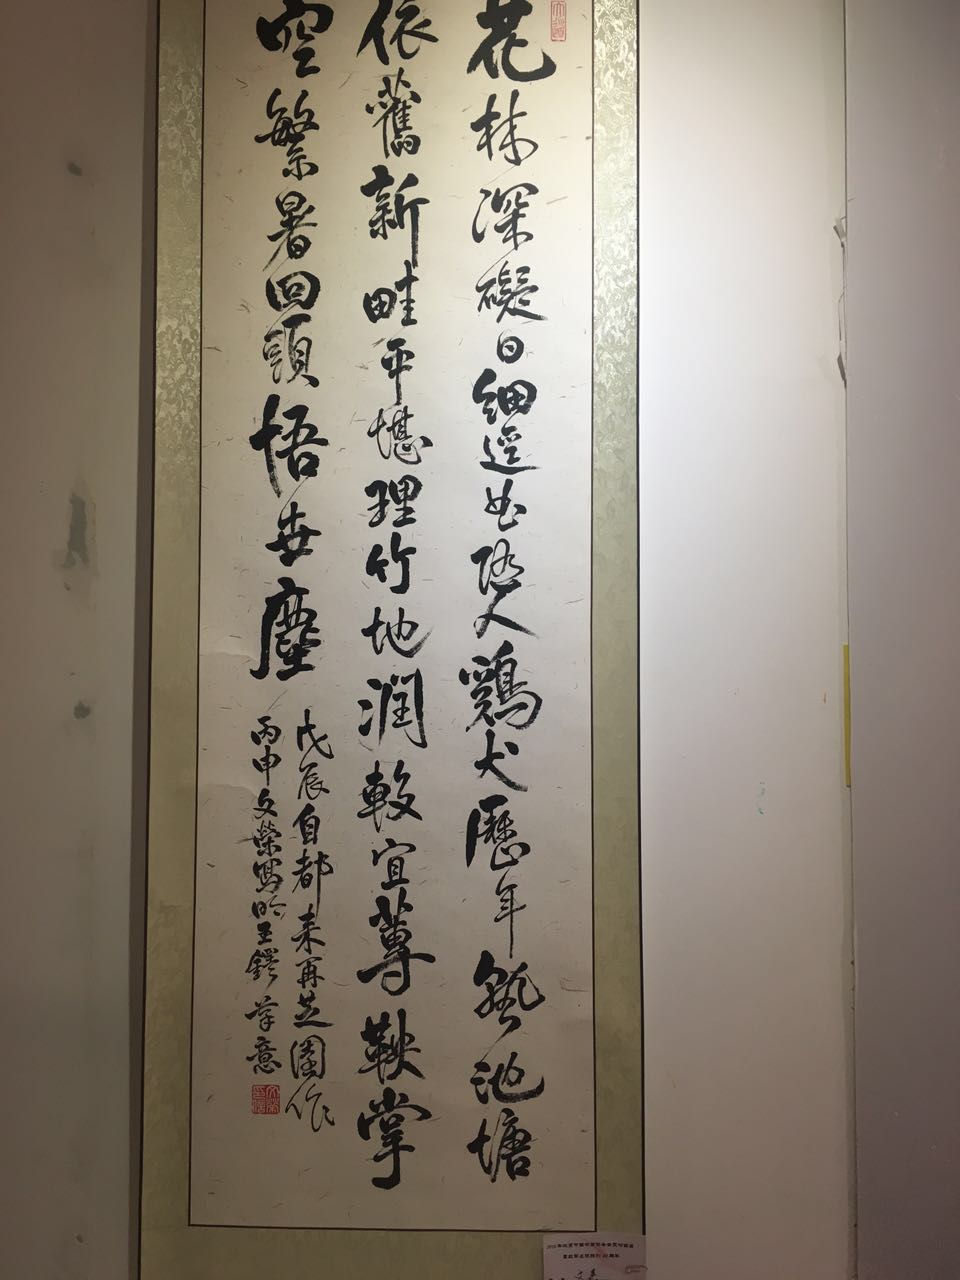 花林深礙日細逕出隱人鷄犬歷年熟池塘
依舊新畦平堪理竹地潤較宜蓴鞅掌
空繁暑回頭悟世塵
戊辰自都来再芝園作
丙申文榮寫王鐸草意